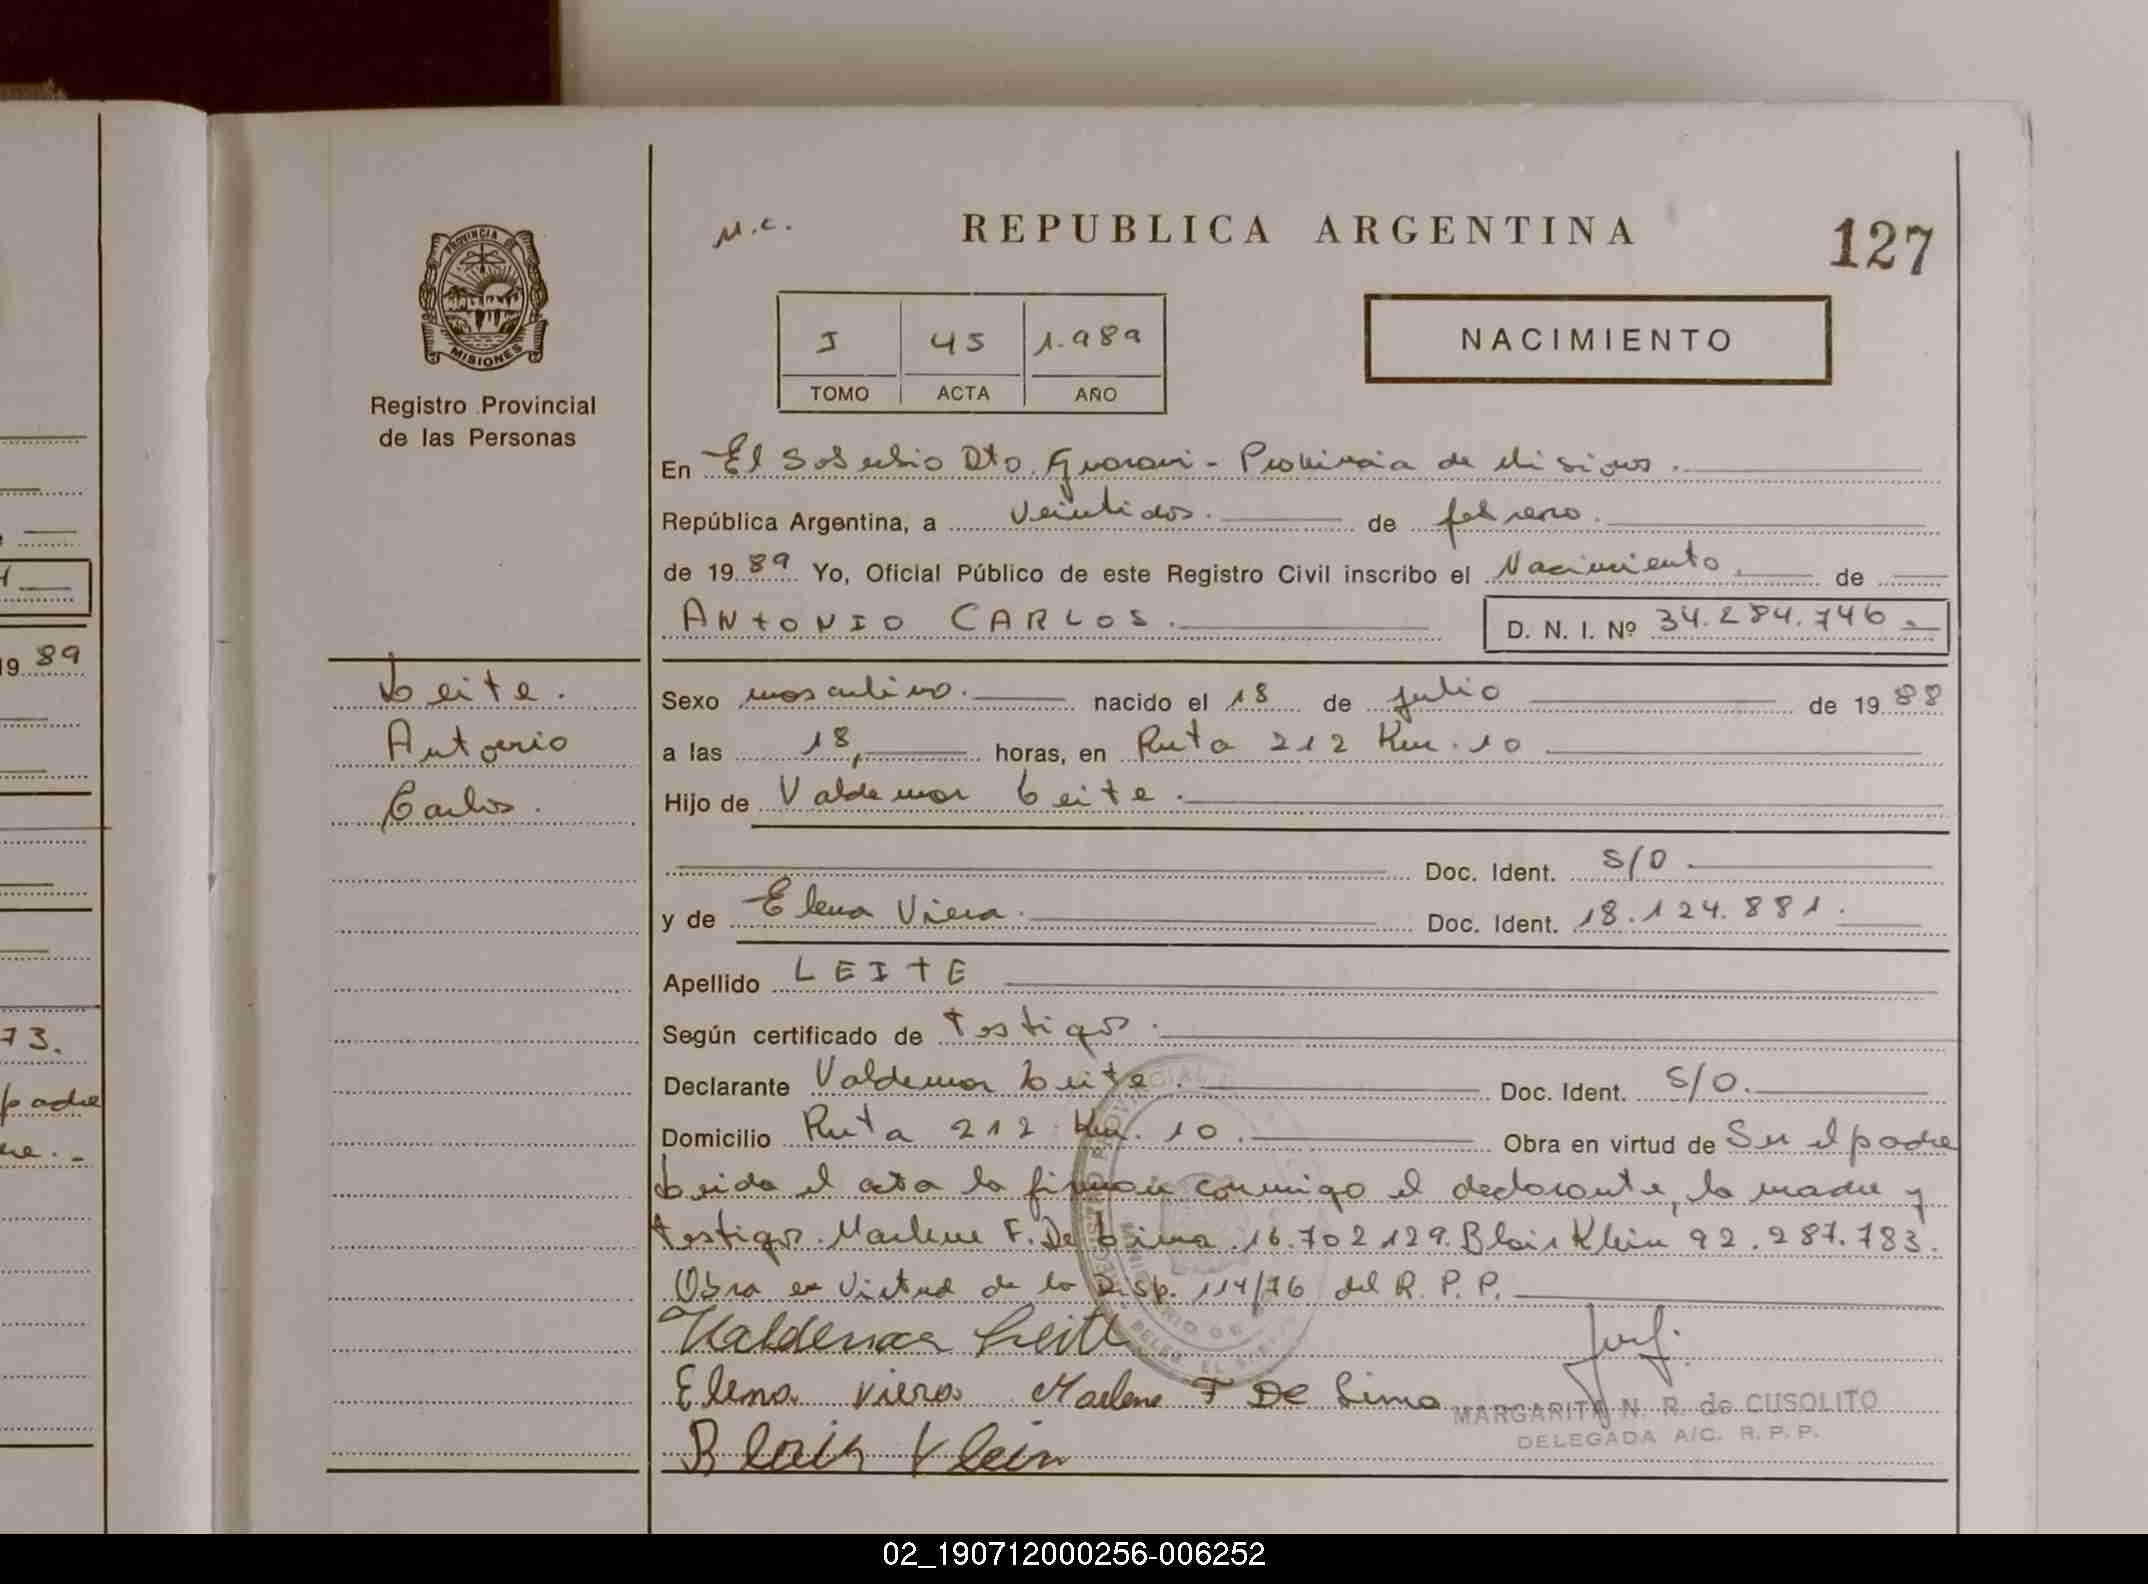 M.C.
REPUBLICA ARGENTINA
127
PROVINCIA DE
MISIONES
Registro Provincial
de las Personas
I 45 1.989
TOMO ACTA AÑO
NACIMIENTO
En El Soberbio Dto. Guarani - Provincia de Misiones.
República Argentina, a veintidos. de febrero.
de 19 89 Yo, Oficial Público de este Registro Civil inscribo el Nacimiento. de
ANTONIO CARLOS.
D. N. I. Nº 34.284.746.-
Leite.
Antonio
Carlos.
Sexo masculino. nacido el 18 de julio de 19 88
a las 18, horas, en Ruta 212 Km. 10
Hijo de Valdemar Leite.
Doc. Ident. S/D
y de Elena Viera. Doc. Ident. 18.124.881.
Apellido LEITE
Según certificado de testigos.
Declarante Valdemar Leite. Doc. Ident. S/D.
Domicilio Ruta 212 Km. 10. Obra en virtud de Su el padre
Leida el acta la firman conmigo el declarante, la madre y
testigos. Marlene F. De Lima 16.702.129. Blair Klein 92.287.783.
Obra en virtud de la Disp. 114/76 del R.P.P.
Valdemar Leite
Elena Viera Marlene F De Lima
MARGARITA N. R. de CUSOLITO
DELEGADA A/C. R. P. P.
Klein
19 89
73.
padre
02_190712000256-006252